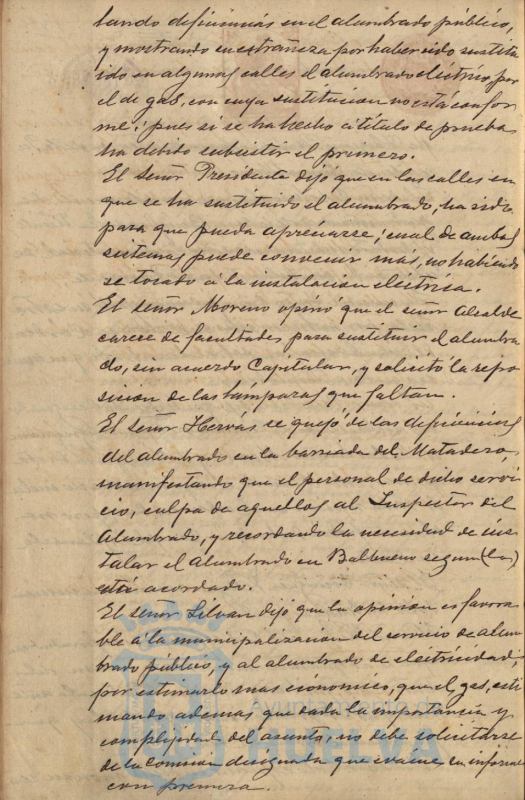 tando deficiencias en el alumbrado público,
y mostrando su extrañeza por haber sido sustitu
ido en algunas calles el alumbrado eléctrico por
el de gas, con cuya sustitucion no está confor
me; pues si se ha hecho á título de prueba
ha debido subsistir el primero.
El Señor Presidente dijó que en las calles en
que se ha sustituido el alumbrado, ha sido
para que pueda apreciarse; cual de ambos
sistemas puede convenir más, no habiendo
se tocado á la instalacion eléctrica.
El señor Moreno opinó que el señor Alcalde
carece de facultades para sustituir el alumbra
do, sin acuerdo Capitular, y solicitó la repo
sicion de las lámparas que faltan.
El señor Hervás se quejó de las deficiencias
del alumbrado en la barriada del Matadero,
manifestando que el personal de dicho servi
cio, culpa de aquellos al Inspector del
Alumbrado, y recordando la necesidad de ins
talar el alumbrado en Balbueno segun
está acordado.
El señor Silvan dijó que la opinion es favora
ble á la municipalizacion del servicio de alum
brado público, y al alumbrado de electricidad,
por estimarlo mas económico, que el gas, esti
mando ademas que dada la importancia y
complejidad del asunto, no debe solicitarse
de la Comision designada que evacue su informe
con premura.
AYUNTAMIENTO DE
HUELVA